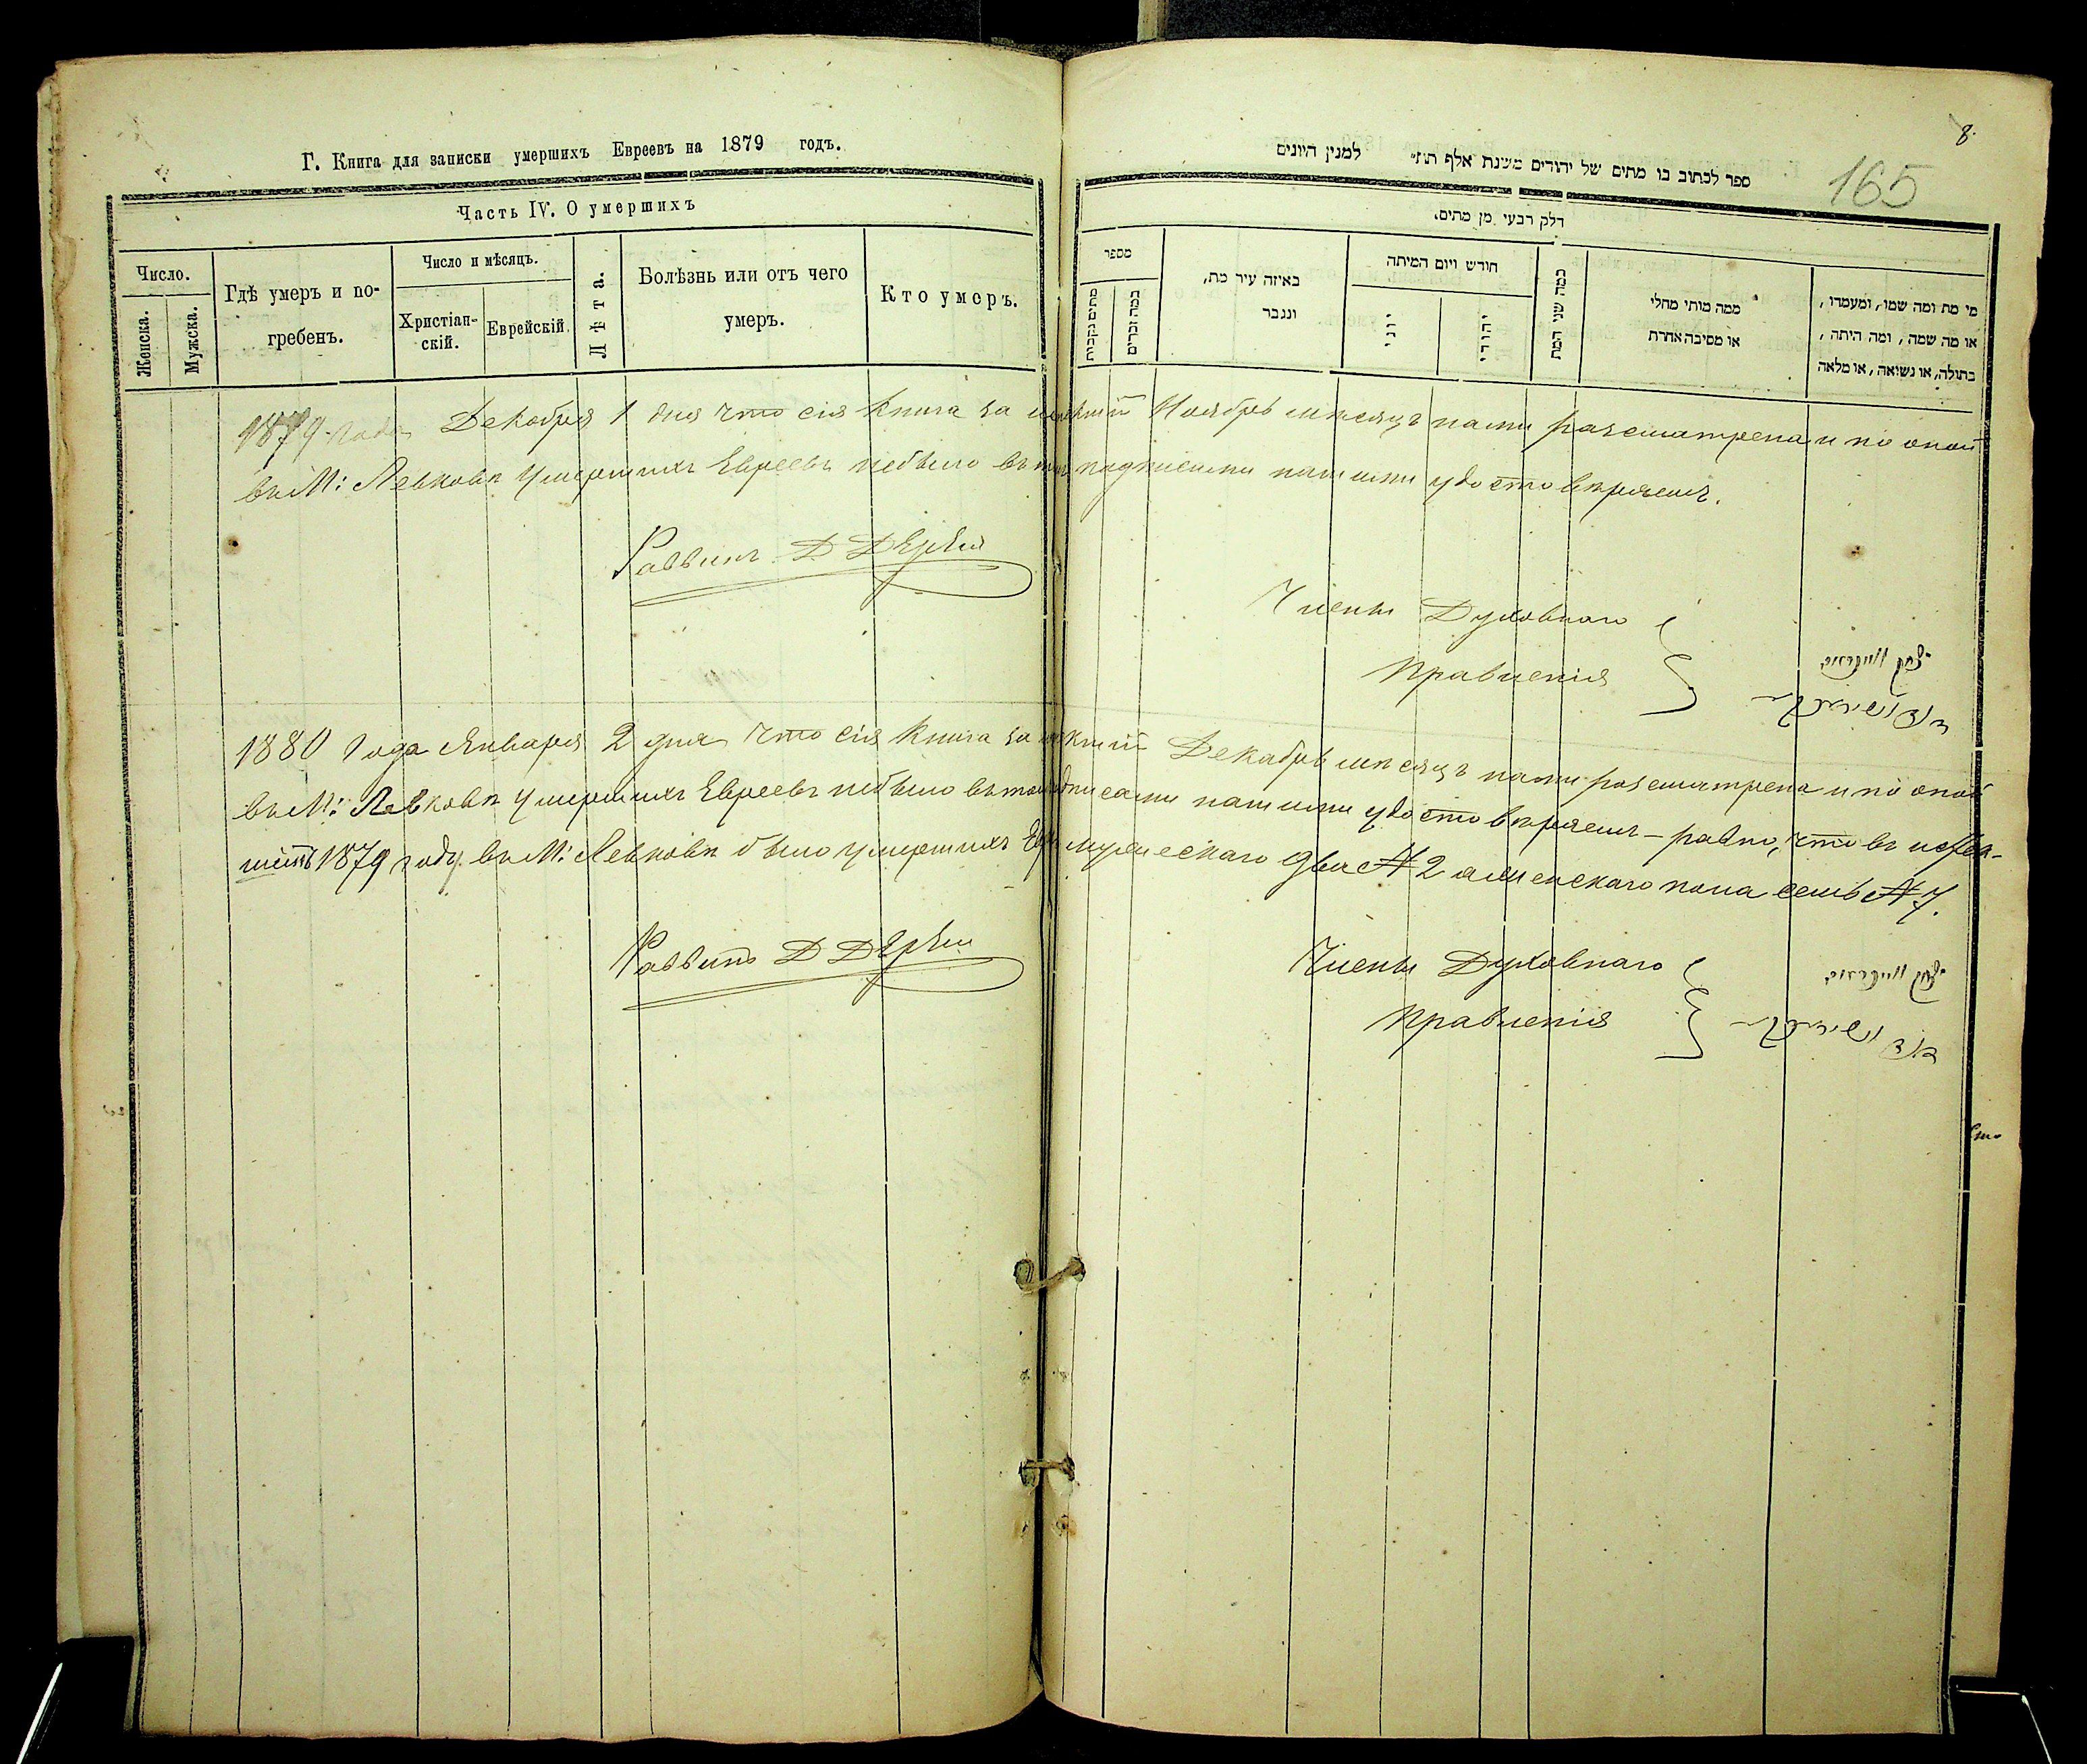 Г. Книга для записки умершихъ Евреевъ на 1879 годъ.
Часть IV. О умершихъ
Число.
Женска.
Мужска.
Гдѣ умеръ и по-
гребенъ.
Число и мѣсяцъ.
Христіан-
скій.
Еврейскій.
Лѣта.
Болѣзнь или отъ чего
умеръ.
Кто умеръ.
8.
165
ספר לכתוב בו מתים של יהודים משנת אלף תת״ למנין היונים
חלק רבעי מן מתים.
מספר
מתים נקבות
כמה זכרים
באיזה עיר מת,
ונגבר
חודש ויום המיתה
יוני
יהודי
כמה שני המת
ממה מותי מחלי
או מסיבה אחרת
מי מת ומה שמו, ומעמדו,
או מה שמה, ומה היתה,
בתולה, או נשואה, או מלאה
1879 года Декабря 1 дня что сія книга за Ноябрь мѣсяцъ нами разсматрена и по оной
въ М: Левковѣ умершихъ Евреевъ небыло въ томъ подписими нашими удостовѣряемъ.
Раввинъ Д
Члены Духовнаго
Правленія
1880 года Января 2 дня что сія книга за Декабрь мѣсяцъ нами разсматрена и по оной
въ М: Левковѣ умершихъ Евреевъ небыло въ томъ подписами нашими удостовѣряемъ – равно, что въ
1879 году въ М: Левковѣ было умершихъ мужескаго два № 2 а женскаго пола семь № 7.
Раввинъ Д
Члены Духовнаго
Правленія